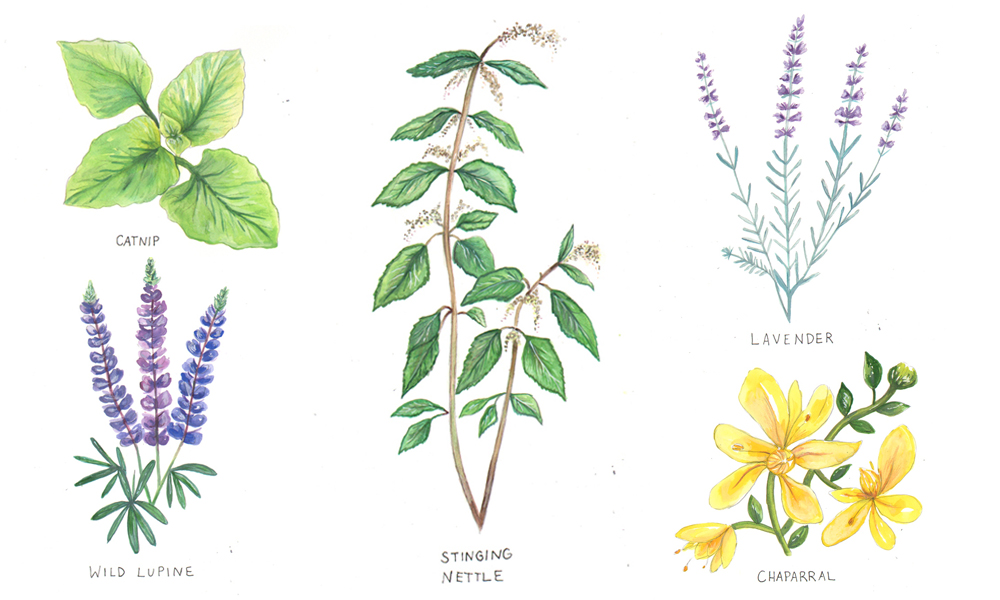 CATNIP
WILD LUPINE
STINGING
NETTLE
LAVENDER
CHAPARRAL